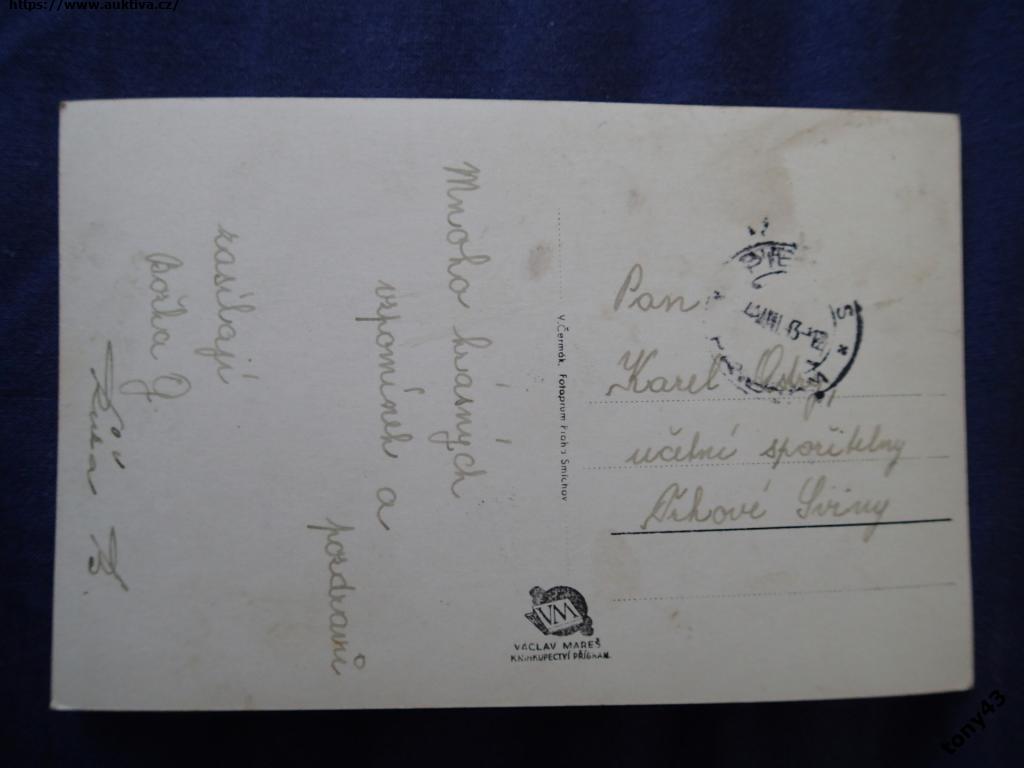 https://www.auktiva.cz/
Mnoho krásných
vzpomínek a
pozdravů
zasílají
Božka J.
V. Čermák, Fotoprum Praha Smíchov
VÁCLAV MAREŠ
KNIHKUPECTVÍ PŘÍBRAM
VM
Pan
Karel
učetní spořitelny
Trhové Sviny
tony43